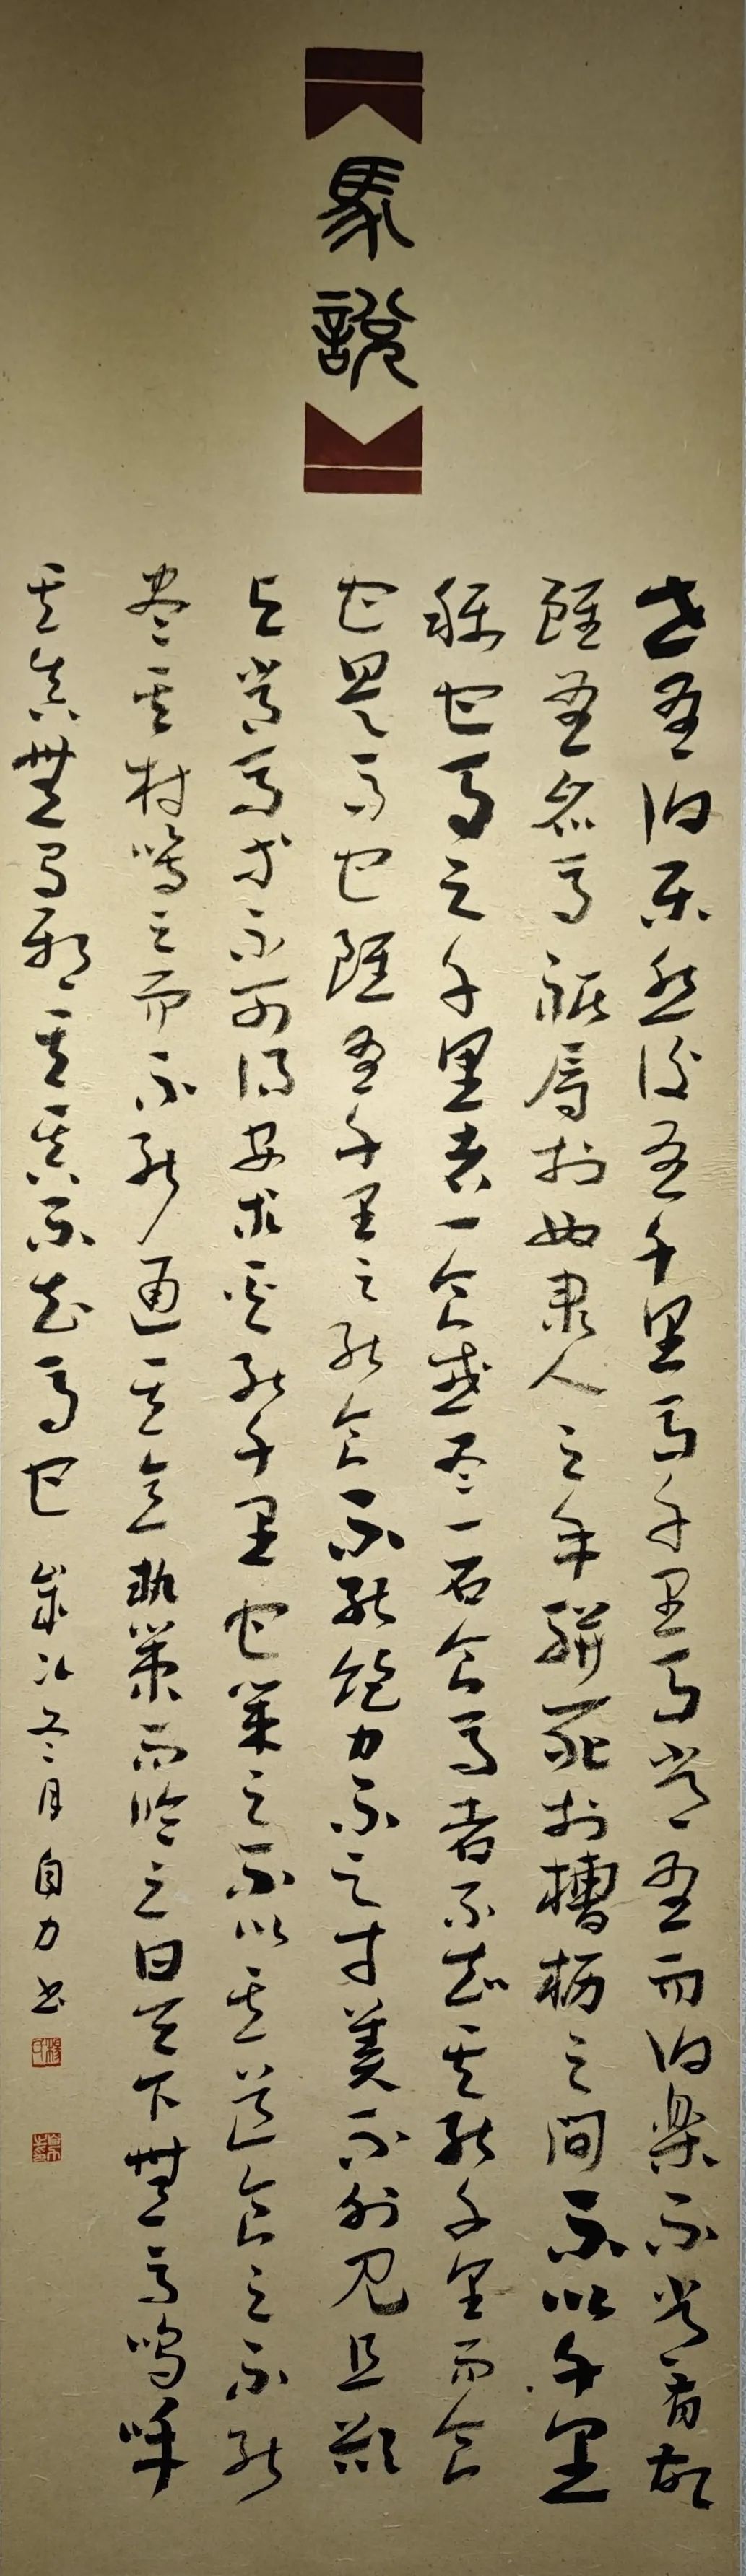 馬說
世有伯樂然後有千里馬千里馬常有而伯樂不常有故
雖有名馬祇辱於奴隸人之手駢死於槽櫪之間不以千里
稱也馬之千里者一食或盡一石食馬者不知其能千里而食
也是馬也雖有千里之能食不能飽力不足才美不外見且欲
與常馬等不可得安求其能千里也策之不以其道食之不能
盡其材鳴之而不能通其意執策而臨之曰天下無馬嗚呼
其真無馬邪其真不知馬也 歲次冬月自力書